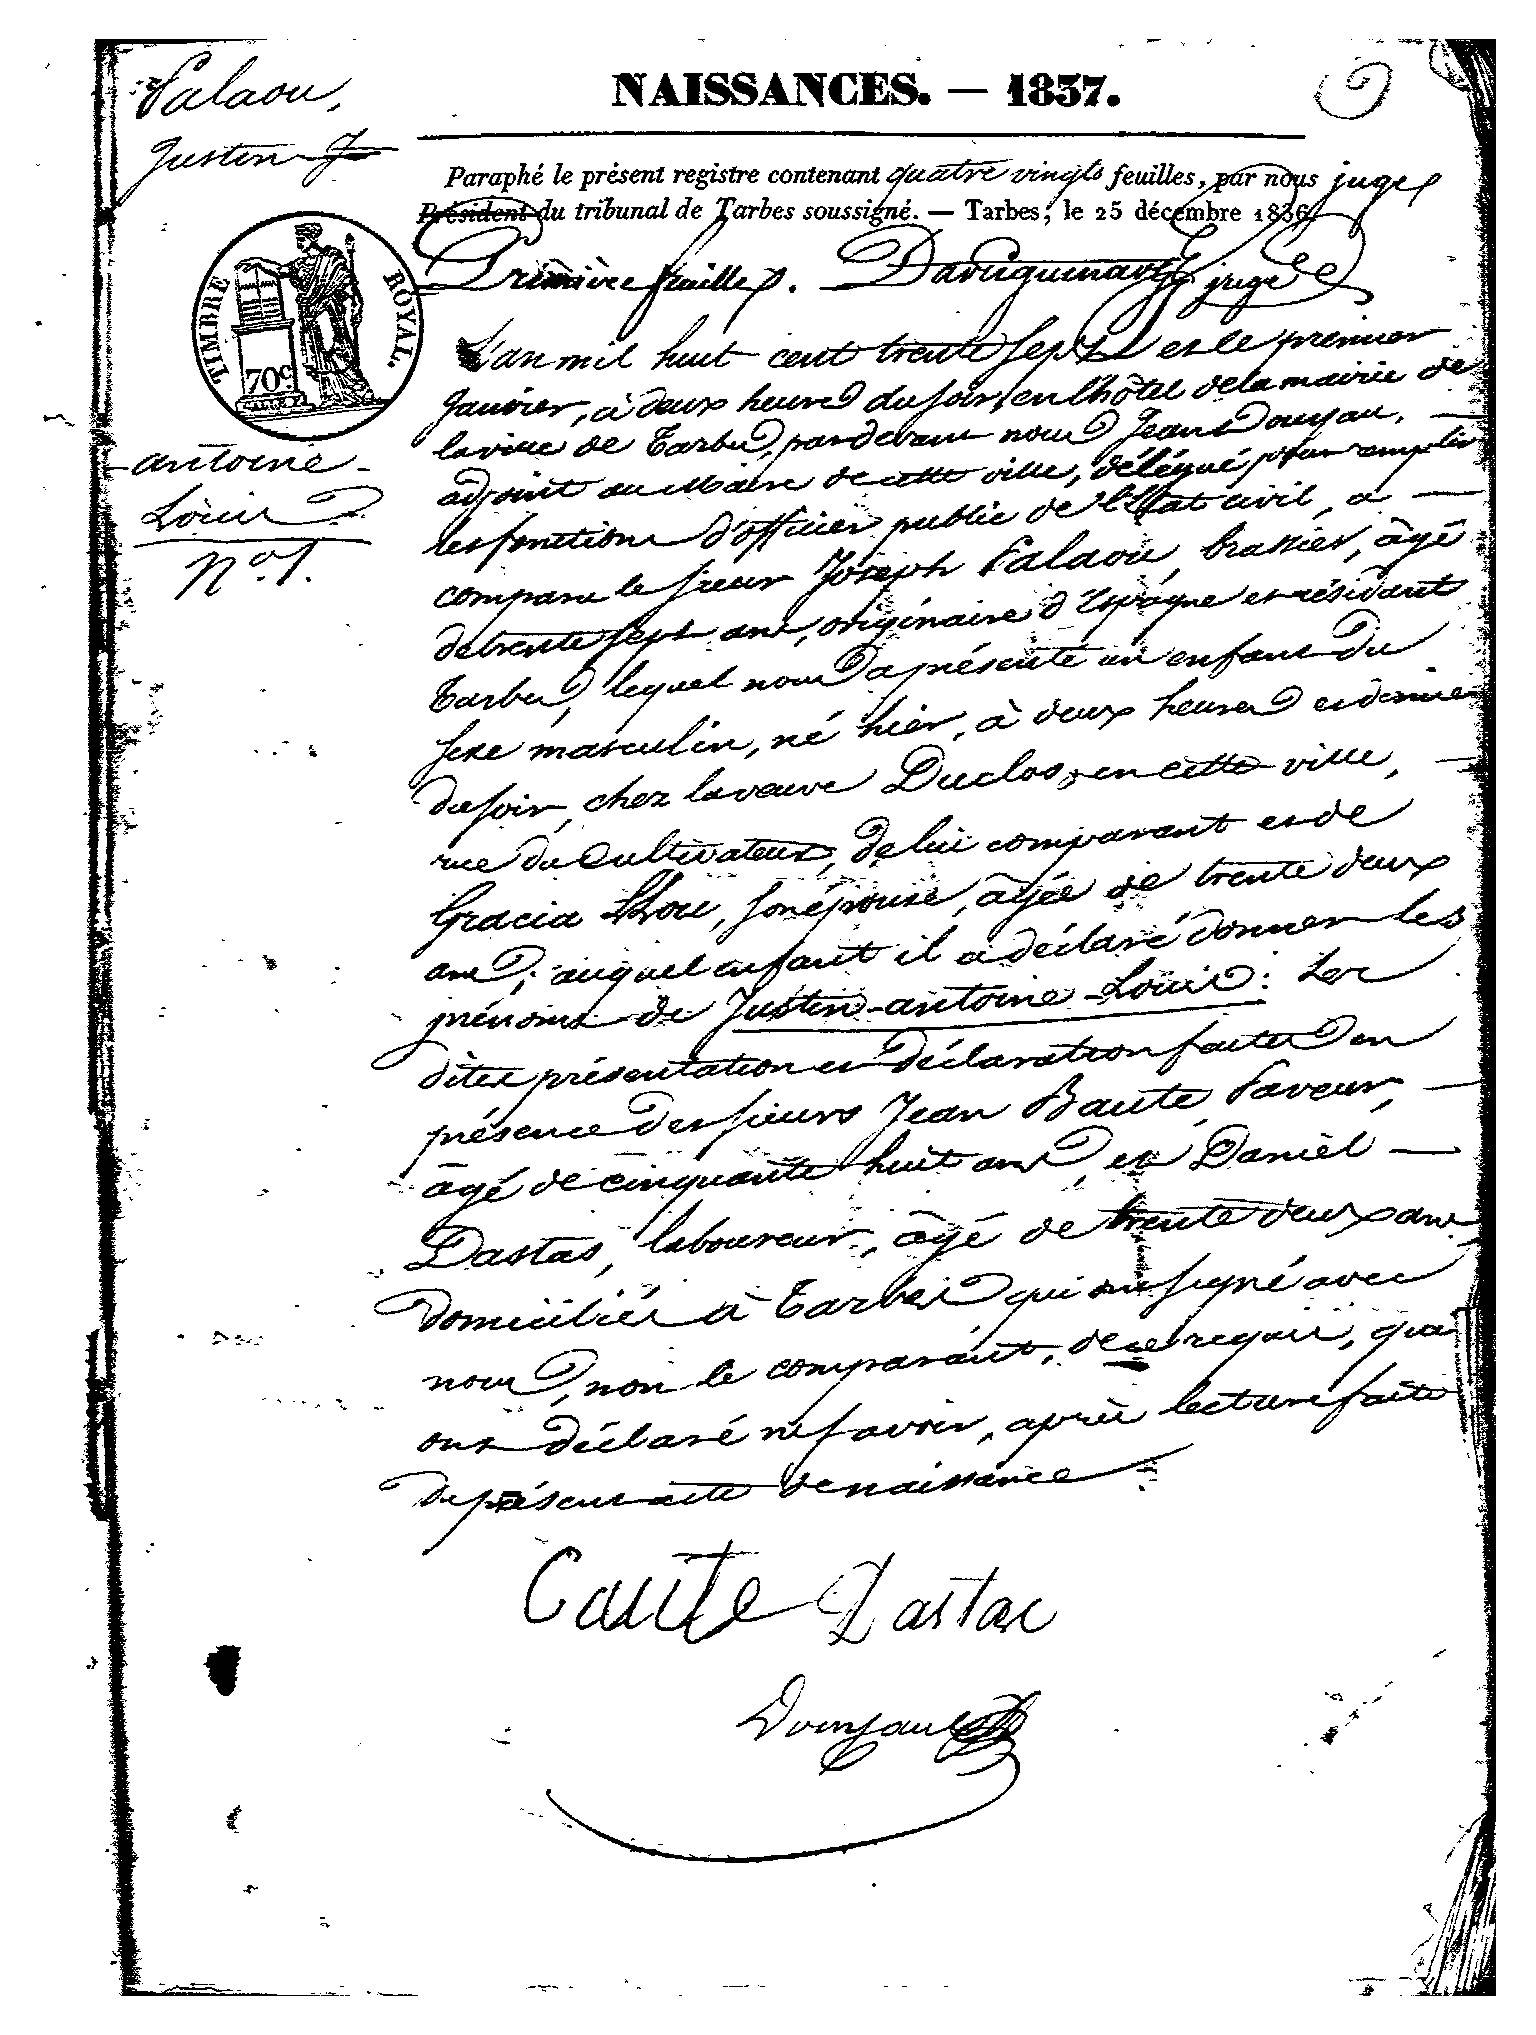 NAISSANCES. — 1837.
Palaou,
Justin J
Paraphé le présent registre contenant quatre vingts feuilles, par nous juge
Président du tribunal de Tarbes soussigné. — Tarbes, le 25 décembre 1836
Première feuille. juge
TIMBRE ROYAL.
70c
antoine
Louis
No. 1.
L'an mil huit cent trente sept et le premier
Janvier, à deux heures du soir, en l'hôtel de la mairie de
la ville de Tarbes, pardevant nous Jean Doujau,
adjoint au Maire de cette ville, délégué pour remplir
les fonctions d'officier public de l'Etat civil, a
comparu le sieur Joseph Palaou, brassier, âgé
de trente sept ans, originaire d'Espagne et résidant
Tarbes, lequel nous a présenté un enfant du
sexe masculin, né hier, à deux heures et demie
du soir, chez la veuve Duclos, en cette ville,
rue du Cultivateur, de lui comparant et de
Gracia son épouse, âgée de trente deux
ans; auquel enfant il a déclaré donner les
prénoms de Justin-antoine-Louis: Les
dites présentation et déclaration faites en
présence des sieurs Jean Baute, Paveur,
âgé de cinquante huit ans, et Daniel
Dastas, laboureur, âgé de trente deux ans,
domiciliés à Tarbes, qui ont signé avec
nous, non le comparant, de ce requis, qua
ont déclaré ne savoir, après lecture faite
du présent acte de naissance
Caute Dastas
Doujau